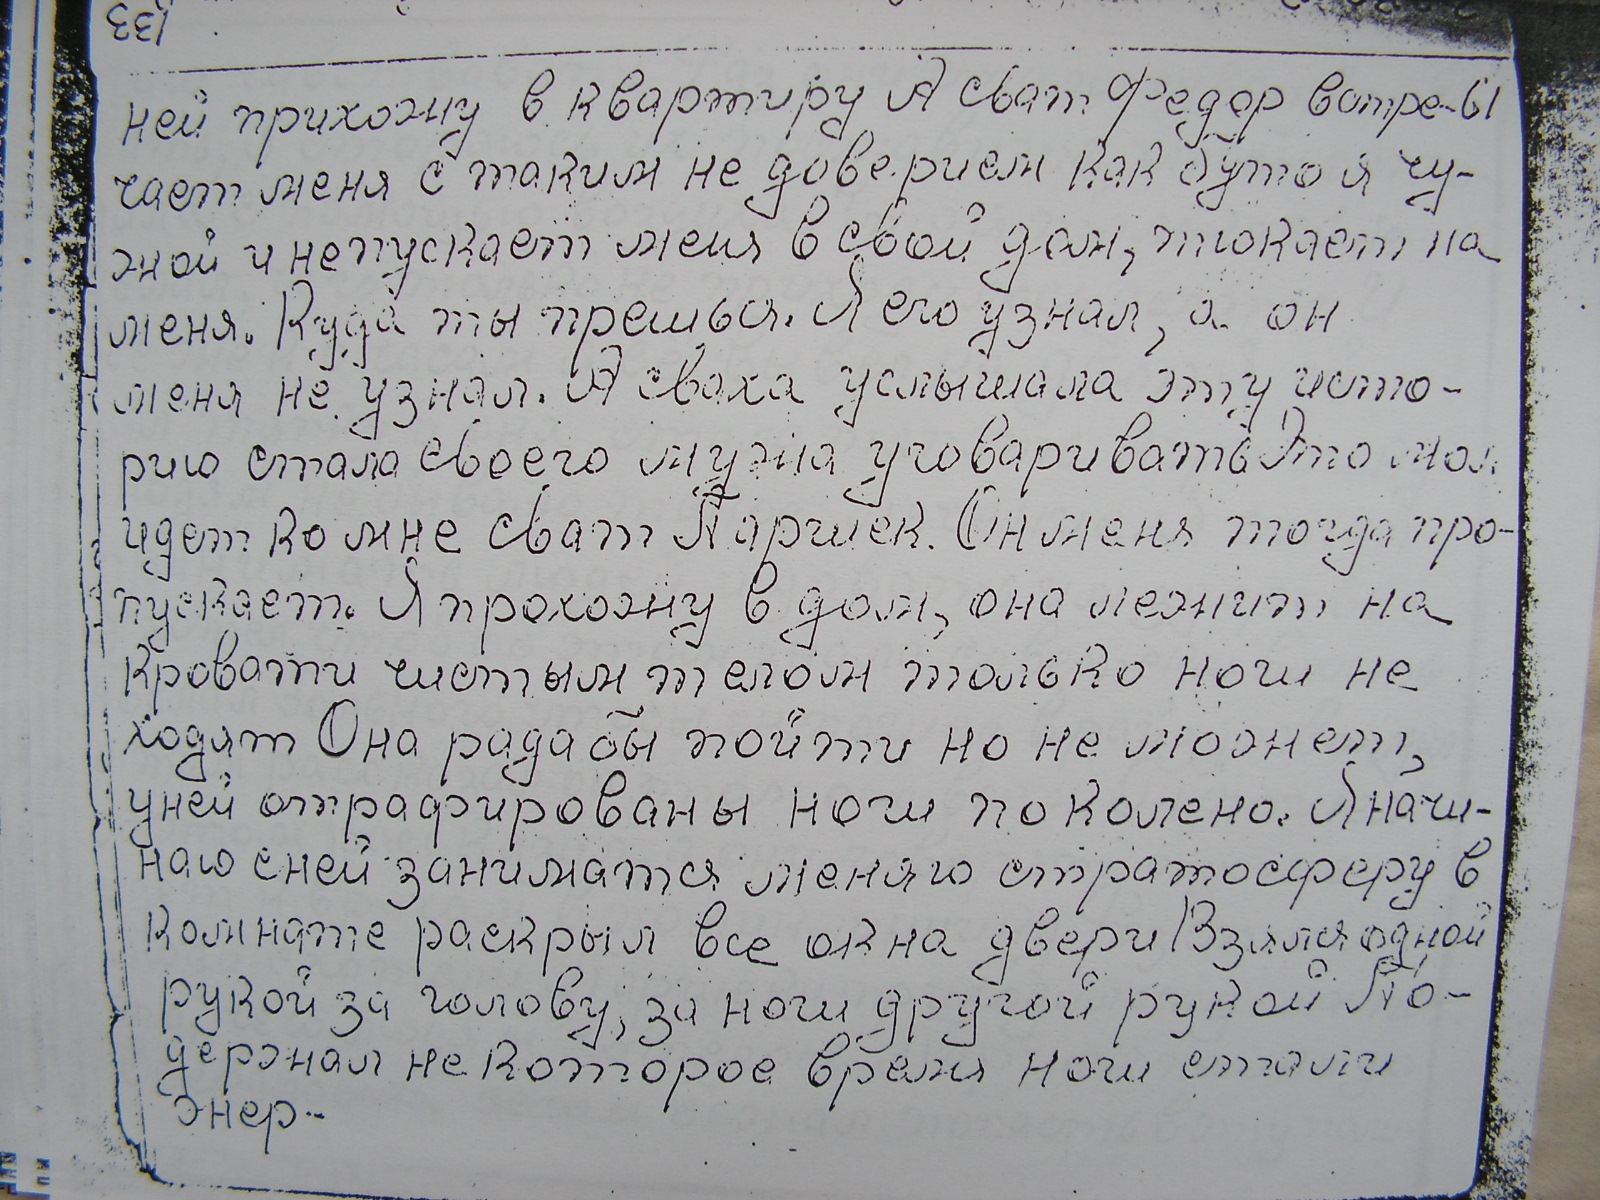 133
ней прихожу в квартиру А сват Федор встре-ы
чает меня с таким не доверием как бутто я чу-
жой и непускает меня в свой дом, тюкает на
меня. Куда ты прешься. Я его узнал, а он
меня не узнал. А сваха услышала эту исто-
рию стала своего мужа уговаривать Это мол
идет ко мне сват Паршек. Он меня тогда про-
пускает. Я прохожу в дом, она лежит на
кровати чистым телом только ноги не
ходят Она рада бы пойти но не может,
уней отрафированы ноги по колено. Я начи-
наю сней заниматся меняю стратосферу в
комнате раскрыл все окна двери Взялся одной
рукой за голову, за ноги другой рукой По-
держал некоторое время ноги стали
энер-